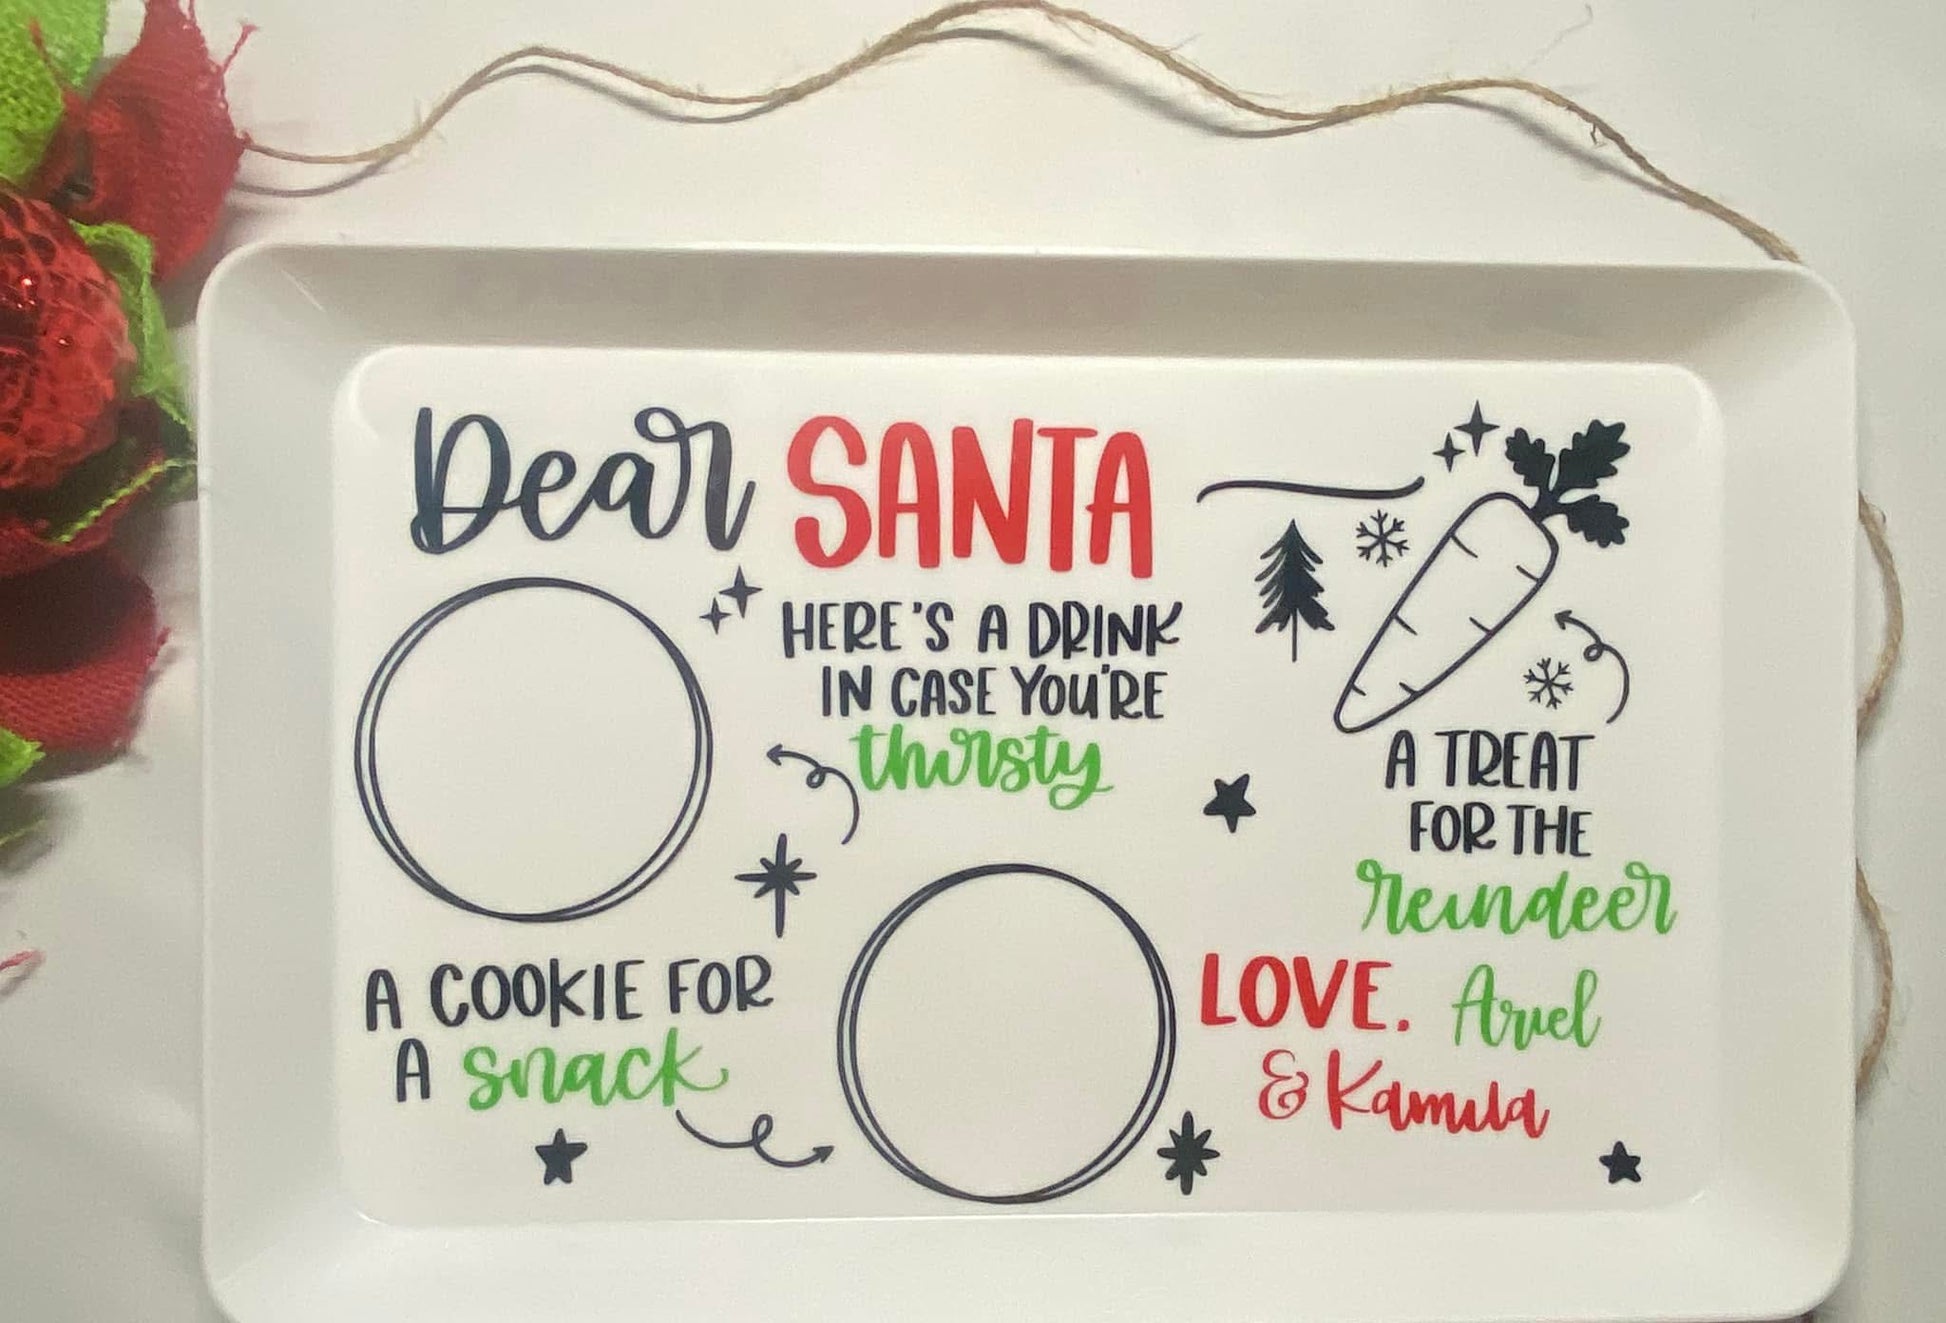 Dear SANTA
HERE'S A DRINK
IN CASE YOU'RE
thirsty
A TREAT
FOR THE
reindeer
A COOKIE FOR
A snack
LOVE, Ariel
& Kamila